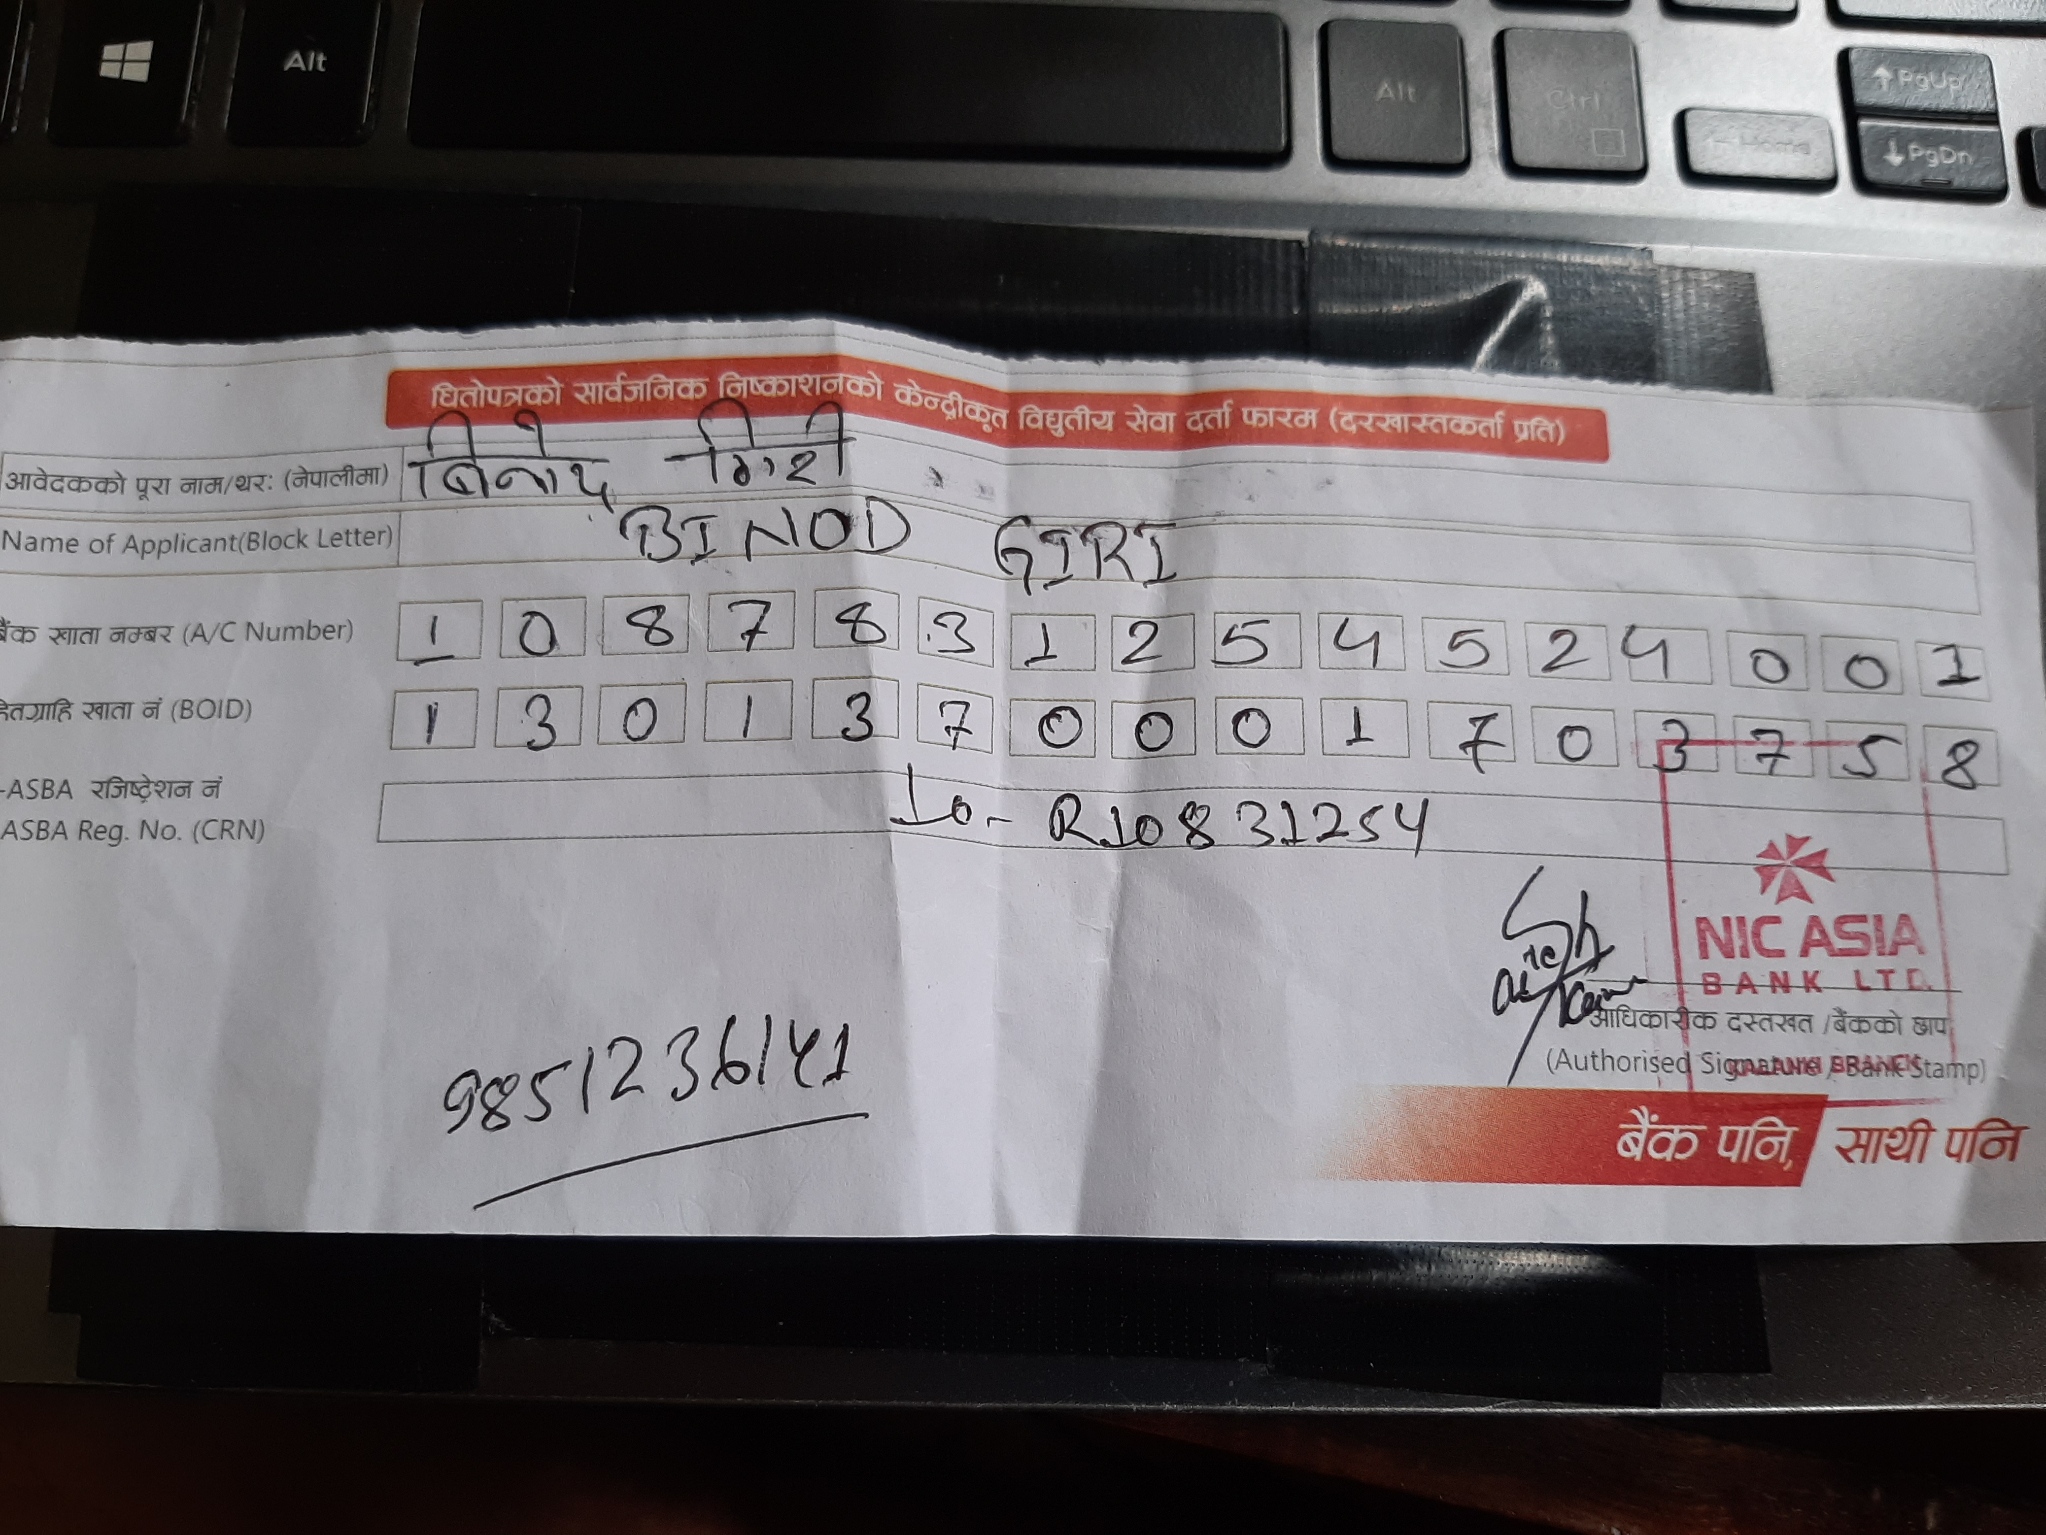 Alt
Alt
Ctrl
Home
↑PgUp
↓PgDn
धितोपत्रको सार्वजनिक निष्काशनको केन्द्रीकृत विद्युतीय सेवा दर्ता फारम (दरखास्तकर्ता प्रति)
आवेदकको पूरा नाम/थर: (नेपालीमा) बिनोद गिरी
Name of Applicant(Block Letter) BINOD GIRI
बैंक खाता नम्बर (A/C Number) 1 0 8 7 8 3 1 2 5 4 5 2 4 0 0 1
हितग्राहि खाता नं (BOID) 1 3 0 1 3 7 0 0 0 1 7 0 3 7 5 8
-ASBA रजिष्ट्रेशन नं
ASBA Reg. No. (CRN) 10- R10831254
NIC ASIA
BANK LTD.
आधिकारीक दस्तखत /बैंकको छाप
(Authorised Signature / Bank Stamp)
BRANCH
9851236141
बैंक पनि, साथी पनि